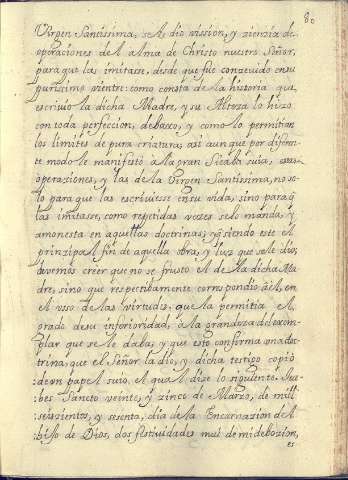 80
Virgen Santissima, se le dio vission, y ziensia de
operaciones del alma de Christo nuestro Señor,
para que las imitasse, desde que fue conzeuido en su
purissimo vientre: como consta de la historia que
escriuio la dicha Madre, y su Alteza lo hizo
con toda perfeccion, debaxo, y como lo permitian
los limites de pura criatura, asi aun que por diferen
te modo le manifesto a la gran Sierba suia, estas
operaciones, y las de la Virgen Santissima, no so
lo para que las escriuiesse en su vida, sino para q̃
las imitasse, como repetidas vezes se lo manda, y
amonesta en aquellas doctrinas; y siendo este el
prinzipal fin de aquella obra, y luz que se le dio,
devemos creer que no se frustò el de la dicha Ma
dre, sino que respectibamente correspondio à el, en
el vsso de las virtudes, que la permitia el
grado de su inferioridad, a la grandeza del exem-
plar que se le daba, y que esto conforma con a doc
trina, que el Señor la dio, y dicha testigo copiò
de vn papel suio, el qual dize lo siguiente. Jue-
bes Sancto veinte, y zinco de Marzo, de mill
seiszientos, y sesenta, dia de la Encarnazion del
hijo de Dios, dos festiuidades mui de mi debozion,
es